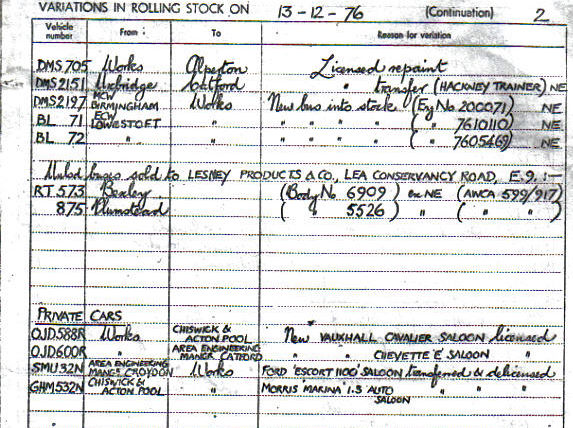 VARIATIONS IN ROLLING STOCK ON 13-12-76 (Continuation) 2
Vehicle number From To Reason for variation
DMS 705 Works Alperton Licensed repaint
DMS 2151 Uxbridge Catford " transfer (HACKNEY TRAINER) NE
DMS 2197 MCW BIRMINGHAM Works New bus into stock (Eng No 200071) NE
BL 71 ECW LOWESTOFT " " " " " ( " 7610110) NE
BL 72 " " " " " " ( " 7605469) NE
buses sold to LESNEY PRODUCTS & CO., LEA CONSERVANCY ROAD, E.9. :-
RT 573 Bexley (Body No 6909) ex NE (AWCA 599/917)
875 Plumstead ( " 5526 ) " ( " " )
PRIVATE CARS
OJD588R Works CHISWICK & ACTON POOL New VAUXHALL CAVALIER SALOON licensed
OJD600R " AREA ENGINEERING MANGR CATFORD " " CHEVETTE 'E' SALOON "
SMU 32N AREA ENGINEERING MANGR CROYDON Works FORD 'ESCORT 1100' SALOON transferred & delicensed
GHM532N CHISWICK & ACTON POOL " MORRIS 'MARINA' 1.3 AUTO SALOON " "